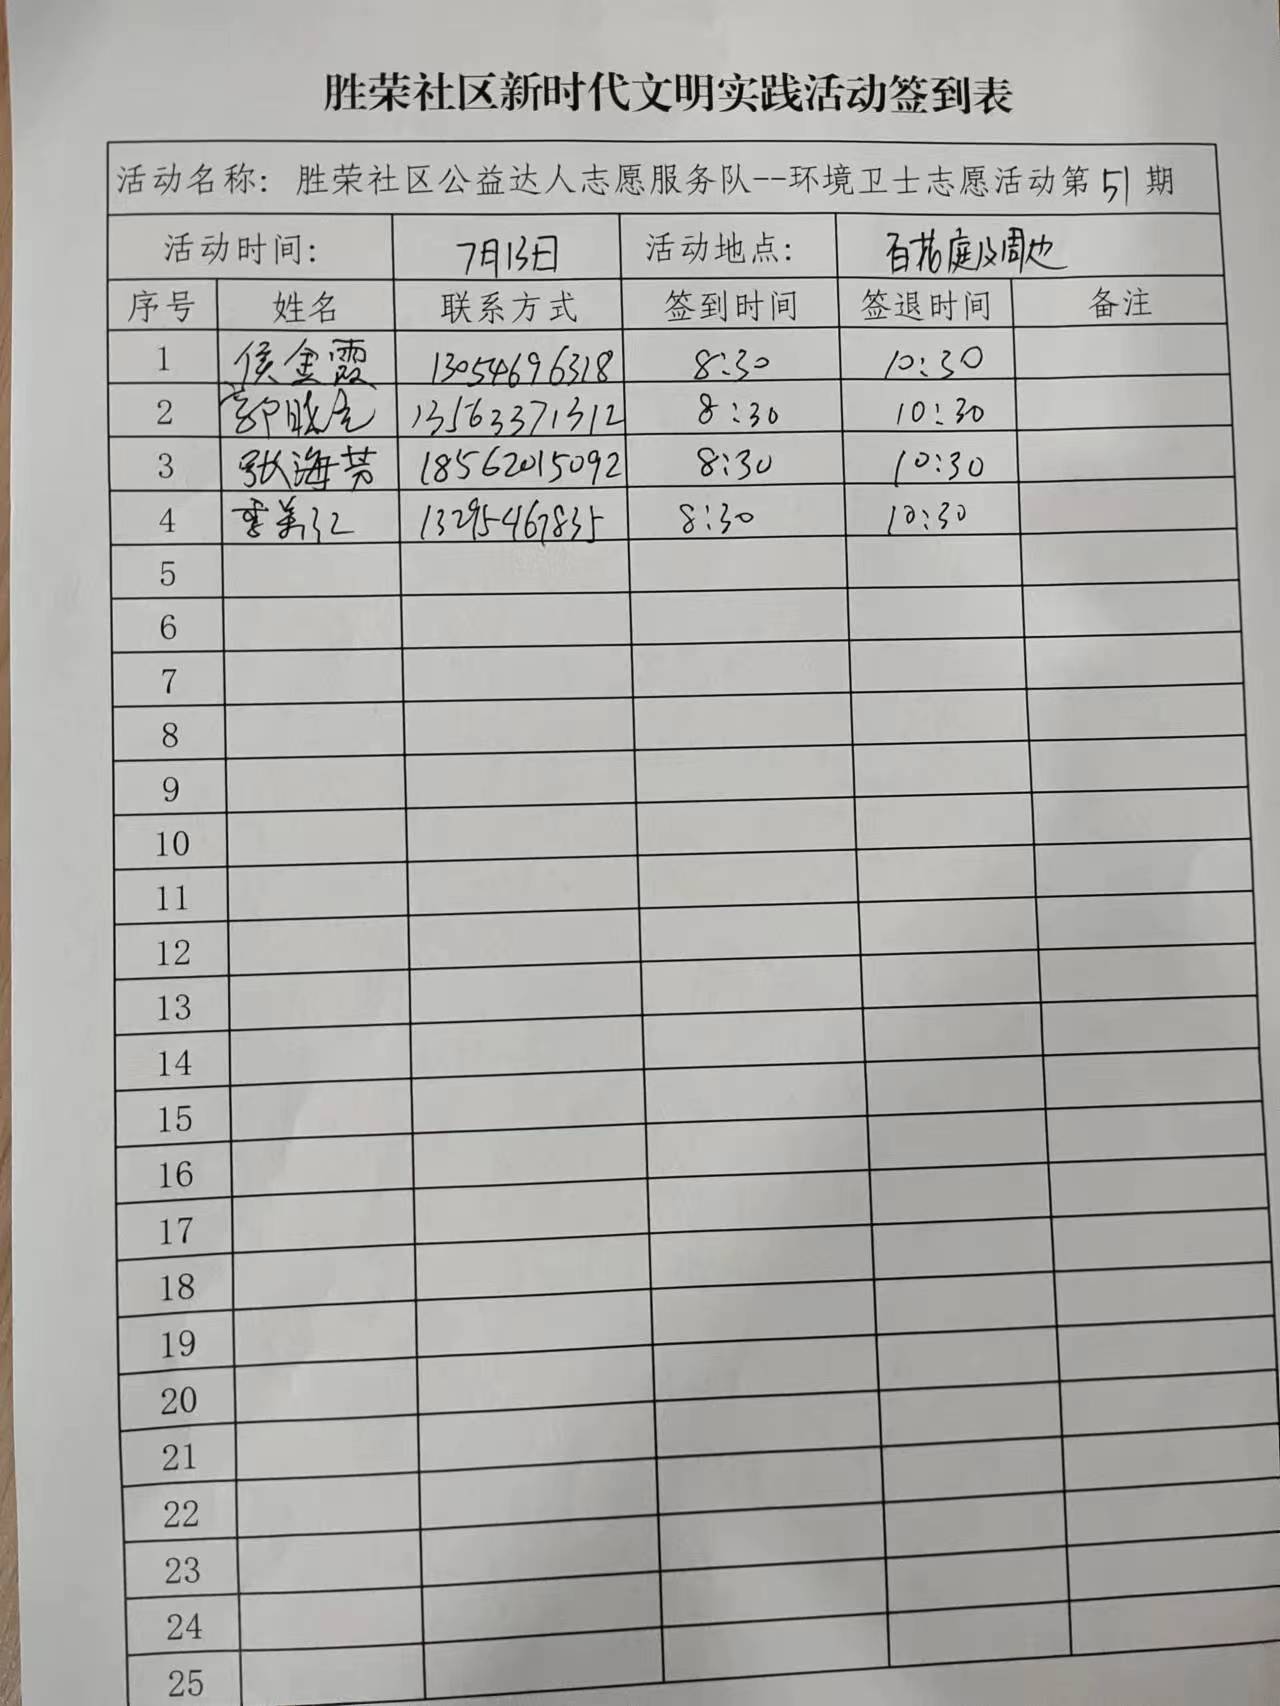 胜荣社区新时代文明实践活动签到表
活动名称: 胜荣社区公益达人志愿服务队--环境卫士志愿活动第51期
活动时间: 7月13日 活动地点: 百花庭及周边
序号 姓名 联系方式 签到时间 签退时间 备注
1 侯金霞 13054696318 8:30 10:30
2 13563371312 8:30 10:30
3 张海芳 18562015092 8:30 10:30
4 李美江 13295467835 8:30 10:30
5
6
7
8
9
10
11
12
13
14
15
16
17
18
19
20
21
22
23
24
25